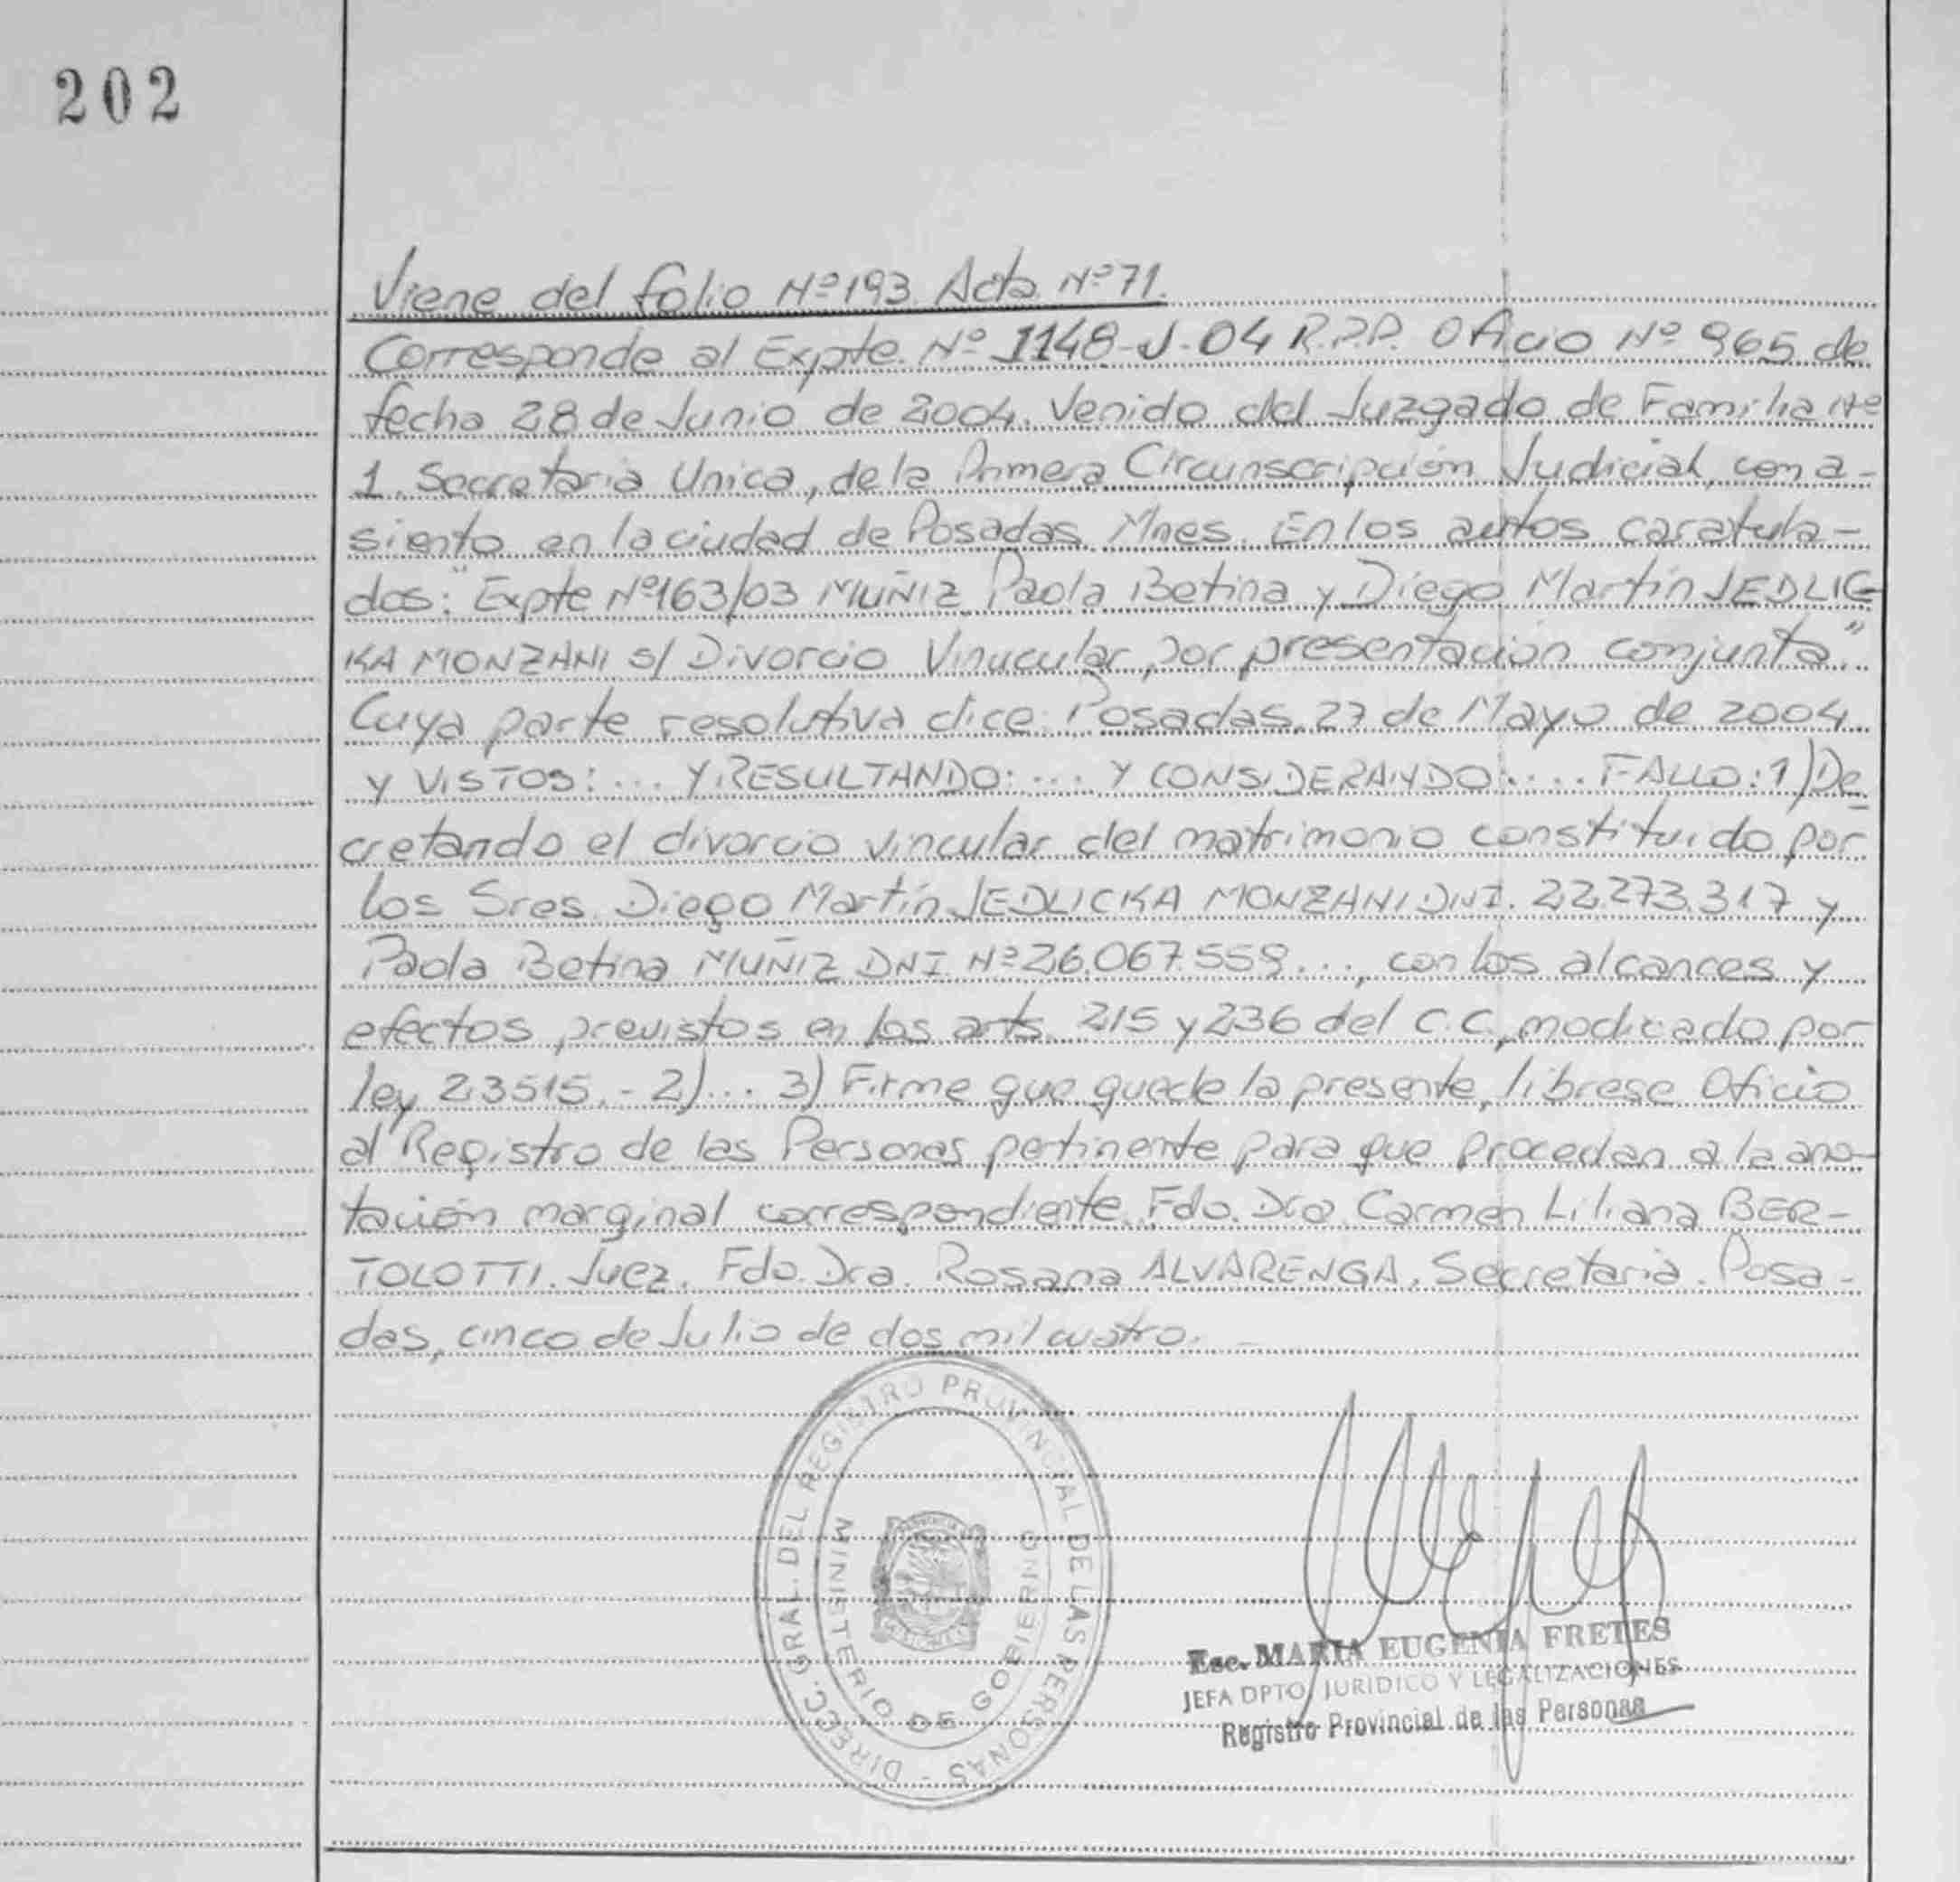 202
Viene del folio Nº 193. Acta Nº 71.
Corresponde al Expte. Nº 1148-J-04 R.P.P. Oficio Nº 965 de
fecha 28 de Junio de 2004. Venido del Juzgado de Familia Nº
1. Secretaria Unica, de la Primera Circunscripción Judicial, con a-
siento en la ciudad de Posadas. Mnes. En los autos caratula-
dos: "Expte Nº 163/03 MUÑIZ Paola Betina y Diego Martín JEDLIC
KA MONZANI s/ Divorcio Vinucular por presentación conjunta."
Cuya parte resolutiva dice: Posadas, 27 de Mayo de 2004.
Y VISTOS: ... Y RESULTANDO: ... Y CONSIDERANDO: ... FALLO: 1) De
cretando el divorcio vincular del matrimonio constituido por
los Sres. Diego Martín JEDLICKA MONZANI DNI. 22.273.317 y
Paola Betina MUÑIZ DNI Nº 26.067.559..., con los alcances y
efectos previstos en los arts. 215 y 236 del C.C., modicado por
ley 23515.- 2)... 3) Firme que quede la presente, librese Oficio
al Registro de las Personas pertinente para que procedan a la ano-
tación marginal correspondiente. Fdo. Dra. Carmen Liliana BER-
TOLOTTI. Juez. Fdo. Dra. Rosana ALVARENGA. Secretaria. Posa-
das, cinco de Julio de dos mil cuatro.
DIRECC. GRAL. DEL REGISTRO PROVINCIAL DE LAS PERSONAS -
MINISTERIO DE GOBIERNO
Esc. MARIA EUGENIA FRETES
JEFA DPTO. JURIDICO Y LEGALIZACIONES
Registro Provincial de las Personas